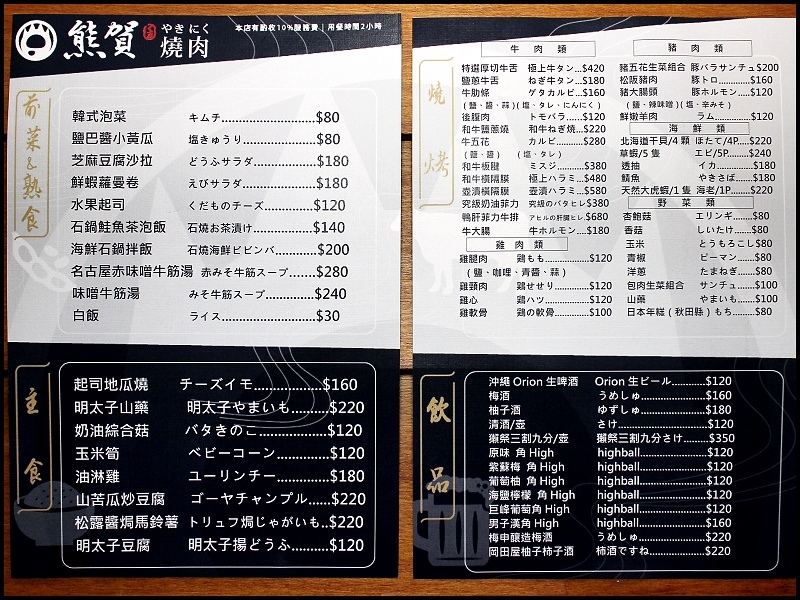 熊賀 やきにく 燒肉
本店有酌收10%服務費｜用餐時間2小時
前菜&熟食
韓式泡菜 キムチ $80
鹽巴醬小黃瓜 塩きゅうり $80
芝麻豆腐沙拉 どうふサラダ $180
鮮蝦蘿曼卷 えびサラダ $180
水果起司 くだものチーズ $120
石鍋鮭魚茶泡飯 石焼お茶漬け $140
海鮮石鍋拌飯 石焼海鮮ビビンバ $200
名古屋赤味噌牛筋湯 赤みそ牛筋スープ $280
味噌牛筋湯 みそ牛筋スープ $240
白飯 ライス $30
主食
起司地瓜燒 チーズイモ $160
明太子山藥 明太子やまいも $220
奶油綜合菇 バタきのこ $120
玉米筍 ベビーコーン $120
油淋雞 ユーリンチー $180
山苦瓜炒豆腐 ゴーヤチャンプル $220
松露醬焗馬鈴薯 トリュフ焗じゃがいも $220
明太子豆腐 明太子揚どうふ $120
燒烤
牛肉類
特選厚切牛舌 極上牛タン $420
鹽蔥牛舌 ねぎ牛タン $180
牛肋條 ゲタカルビ $160
(鹽、醬、蒜)(塩、タレ、にんにく)
後腹肉 トモバラ $120
和牛鹽蔥燒 和牛ねぎ焼 $220
牛五花 カルビ $280
(鹽、醬) (塩、タレ)
和牛板腱 ミスジ $380
和牛橫隔膜 極上ハラミ $480
壺漬橫隔膜 壺漬ハラミ $580
究級奶油菲力 究級のバタヒレ $380
鴨肝菲力牛排 アヒルの肝臓ヒレ $680
牛大腸 牛ホルモン $180
雞肉類
雞腿肉 鶏もも $120
(鹽、咖哩、青醬、蒜)
雞頸肉 鶏せせり $120
雞心 鶏ハツ $120
雞軟骨 鶏の軟骨 $100
豬肉類
豬五花生菜組合 豚バラサンチュ $200
松阪豬肉 豚トロ $160
豬大腸頭 豚ホルモン $120
(鹽、辣味噌)(塩、辛みそ)
鮮嫩羊肉 ラム $120
海鮮類
北海道干貝/4顆 ほたて/4P $220
草蝦/5隻 エビ/5P $240
透抽 イカ $180
鯖魚 やきさば $180
天然大虎蝦/1隻 海老/1P $220
野菜類
杏鮑菇 エリンギ $80
香菇 しいたけ $80
玉米 とうもろこし $80
青椒 ピーマン $80
洋蔥 たまねぎ $80
包肉生菜組合 サンチュ $100
山藥 やまいも $100
日本年糕(秋田縣) もち $80
飲品
沖繩 Orion 生啤酒 Orion 生ビール $120
梅酒 うめしゅ $160
柚子酒 ゆずしゅ $180
清酒/壺 さけ $120
獺祭三割九分/壺 獺祭三割九分さけ $350
原味 角 High highball $120
紫蘇梅 角 High highball $120
葡萄柚 角 High highball $120
海鹽檸檬 角 High highball $120
巨峰葡萄角 High highball $120
男子漢角 High highball $160
梅申釀造梅酒 うめしゅ $220
岡田屋柚子柿子酒 柿酒ですね $220